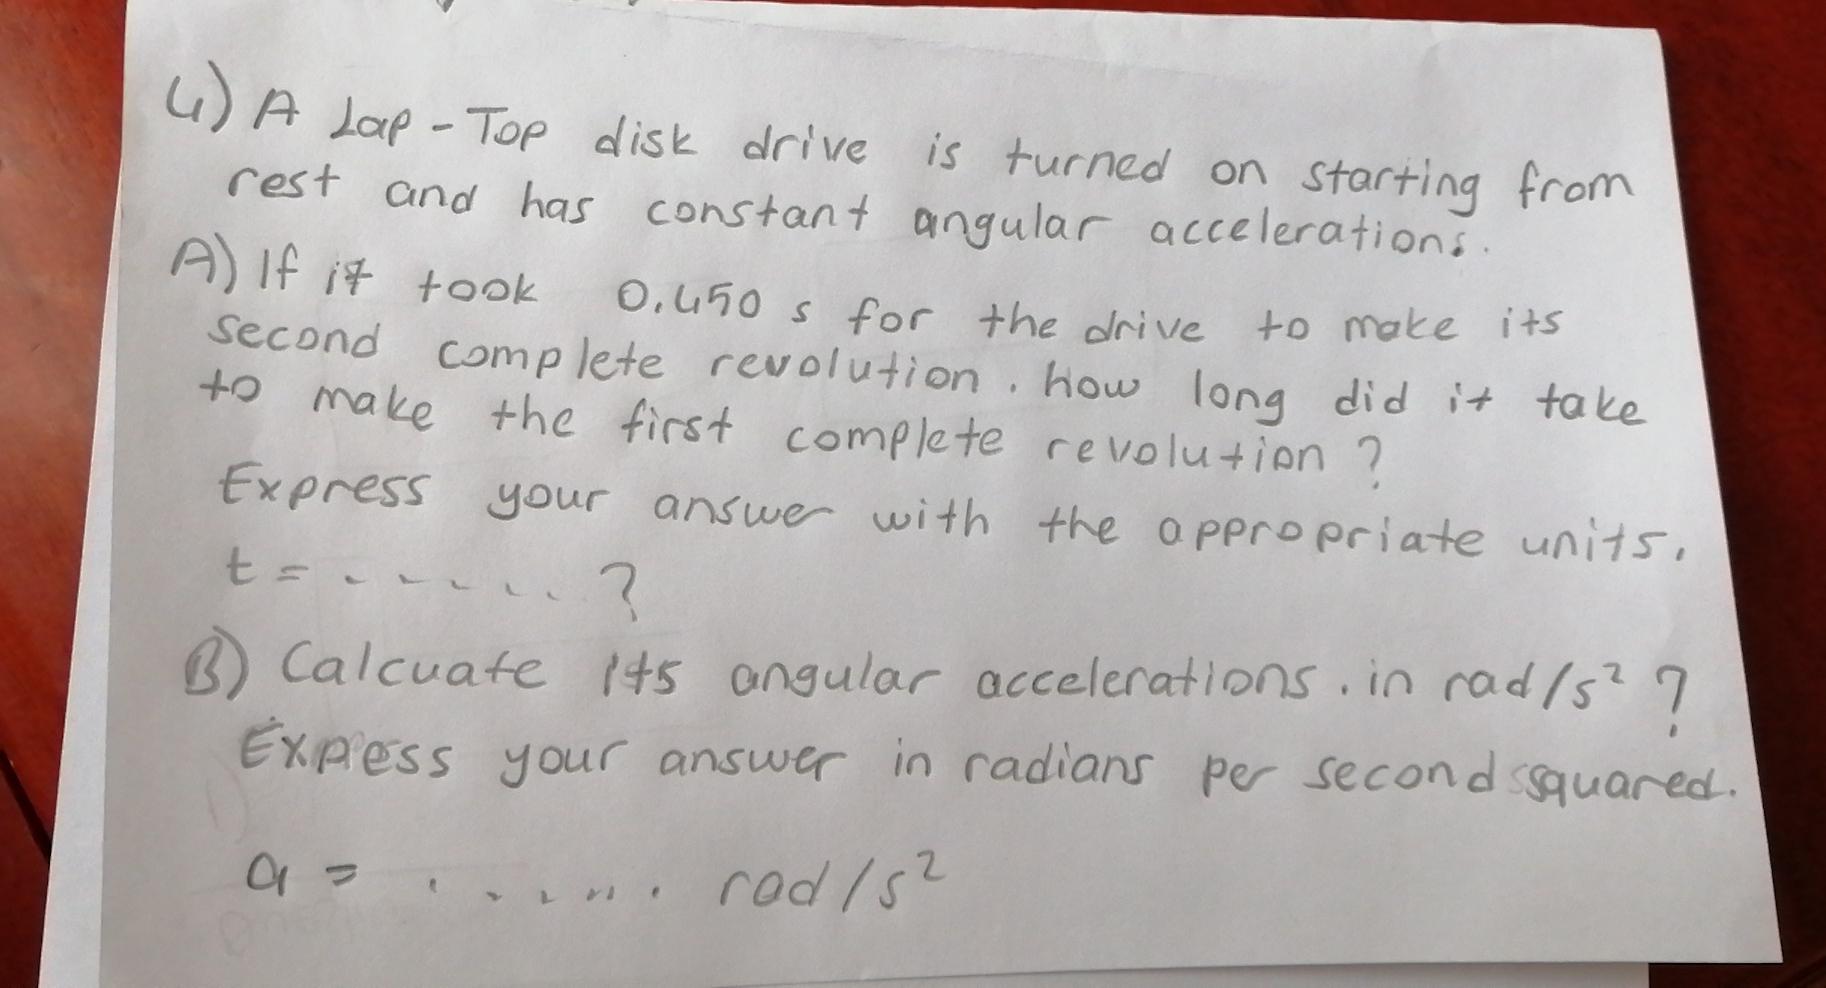 4) A Lap-Top disk drive is turned on starting from
rest and has constant angular accelerations.
A) If it took 0.450 s for the drive to make its
second complete revolution. how long did it take
to make the first complete revolution?
Express your answer with the appropriate units.
t = ......?
B) Calcuate its angular accelerations. in rad/s² ?
Express your answer in radians per second squared.
a = ...... rad/s²